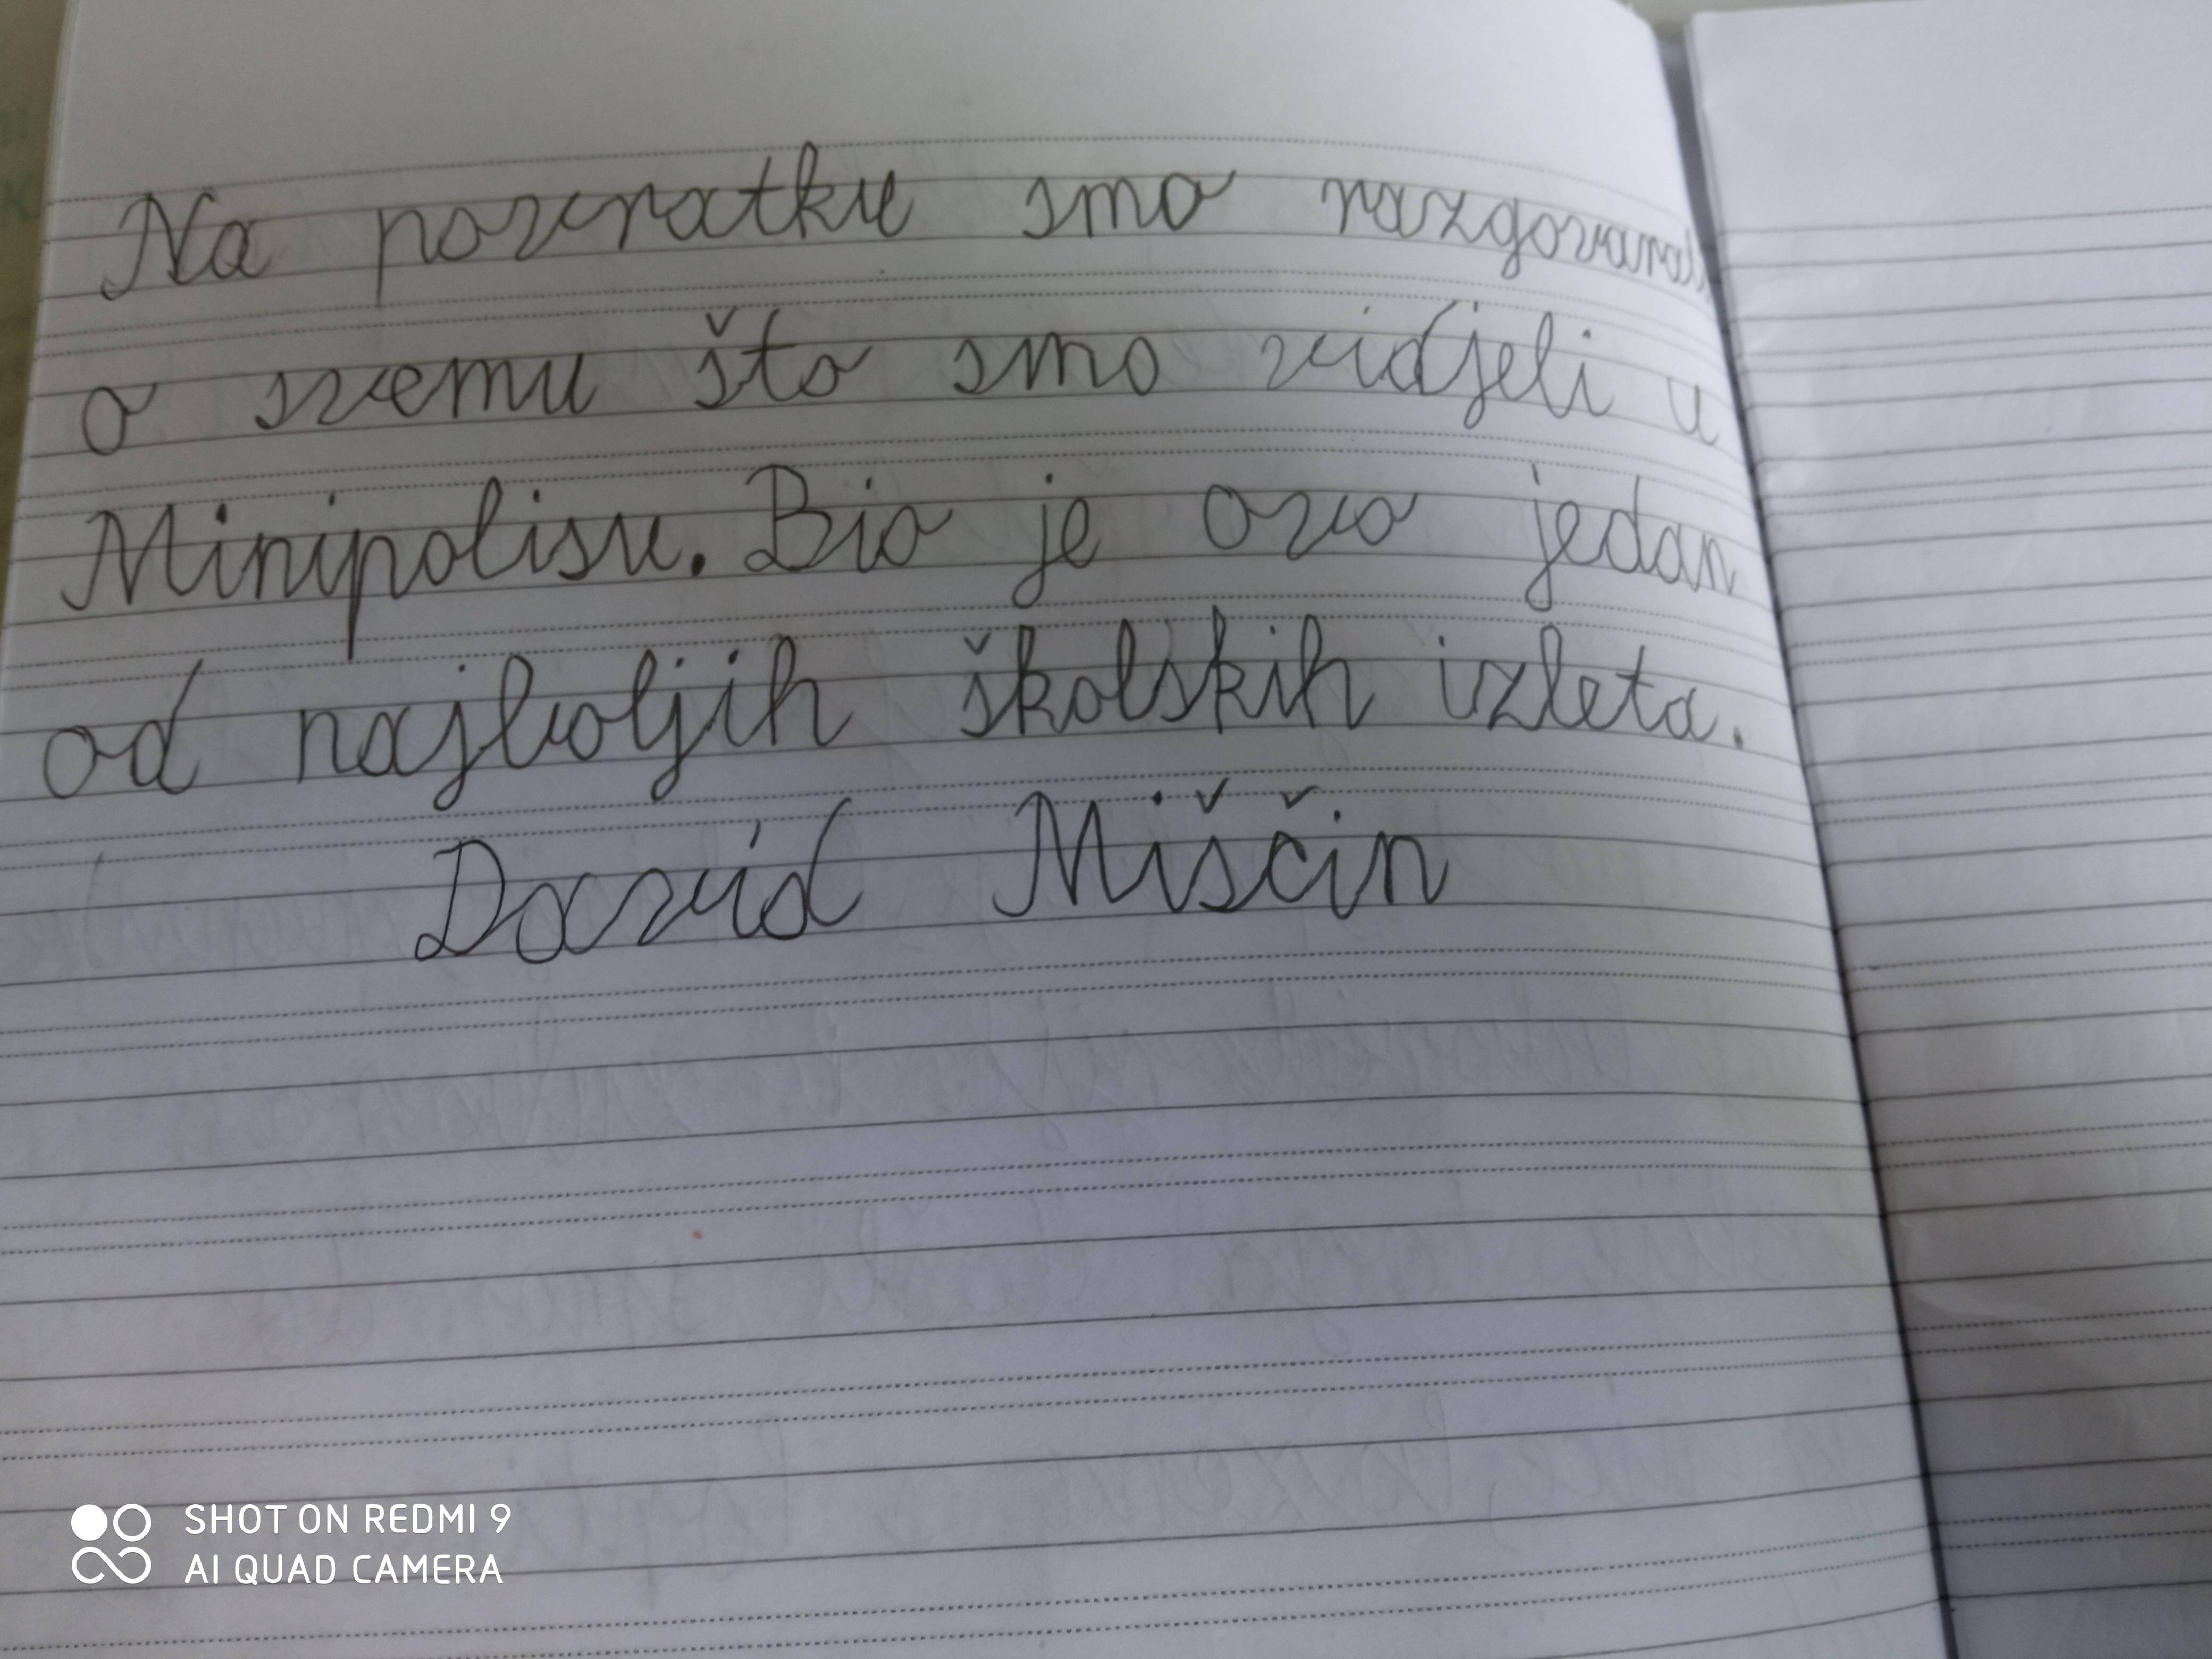 Na povratku smo razgovarali
o svemu što smo vidjeli u
Minipolisu. Bio je ovo jedan
od najboljih školskih izleta.
David Miščin
SHOT ON REDMI 9
AI QUAD CAMERA